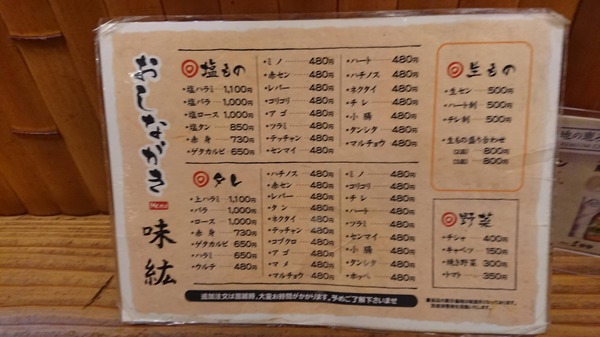 おしながき
MENU
味紘
塩もの
・塩ハラミ 1,100円
・塩バラ 1,000円
・塩ロース 1,000円
・塩タン 850円
・赤身 730円
・ゲタカルビ 650円
・ミノ 480円
・赤セン 480円
・レバー 480円
・コリコリ 480円
・アゴ 480円
・ツラミ 480円
・テッチャン 480円
・センマイ 480円
・ハート 480円
・ハチノス 480円
・ネクタイ 480円
・チレ 480円
・小腸 480円
・タンシタ 480円
・マルチョウ 480円
タレ
・上ハラミ 1,100円
・バラ 1,000円
・ロース 1,000円
・赤身 730円
・ゲタカルビ 650円
・ハラミ 650円
・ウルテ 480円
・ハチノス 480円
・赤セン 480円
・レバー 480円
・タン 480円
・ネクタイ 480円
・テッチャン 480円
・コブクロ 480円
・アゴ 480円
・マメ 480円
・マルチョウ 480円
・ミノ 480円
・コリコリ 480円
・チレ 480円
・ハート 480円
・ツラミ 480円
・センマイ 480円
・小腸 480円
・タンシタ 480円
・ホッペ 480円
生もの
・生セン 500円
・ハート刺 500円
・チレ刺 500円
・生もの盛り合わせ
800円
800円
野菜
・チシャ 400円
・キャベツ 150円
・焼き野菜 300円
・トマト 350円
追加注文は混雑時、大変お時間がかかります。予めご了解下さいませ